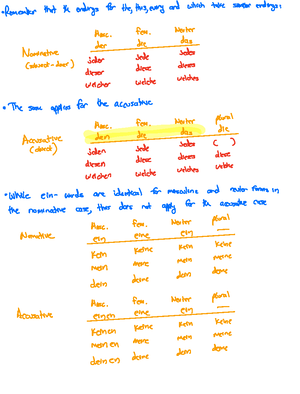 • Remember that the endings for the, this, every and which take similar endings:
Masc. fem. Neuter
der die das
Nominative
(subject-doer)
jeder jede jedes
dieser diese dieses
welcher welche welches
• The same applies for the accusative
Masc. fem. Neuter plural
den die das die
Accusative
(object)
jeden jede jedes ( )
diesen diese dieses diese
welchen welche welches welche
• While ein- words are identical for masculine and neuter forms in
the nominative case, this does not apply for the accusative case
Masc. fem. Neuter plural
Nominative
ein eine ein
kein keine kein keine
mein meine mein meine
dein deine dein deine
Masc. fem. Neuter plural
Accusative
einen eine ein
keinen keine kein keine
meinen meine mein meine
deinen deine dein deine